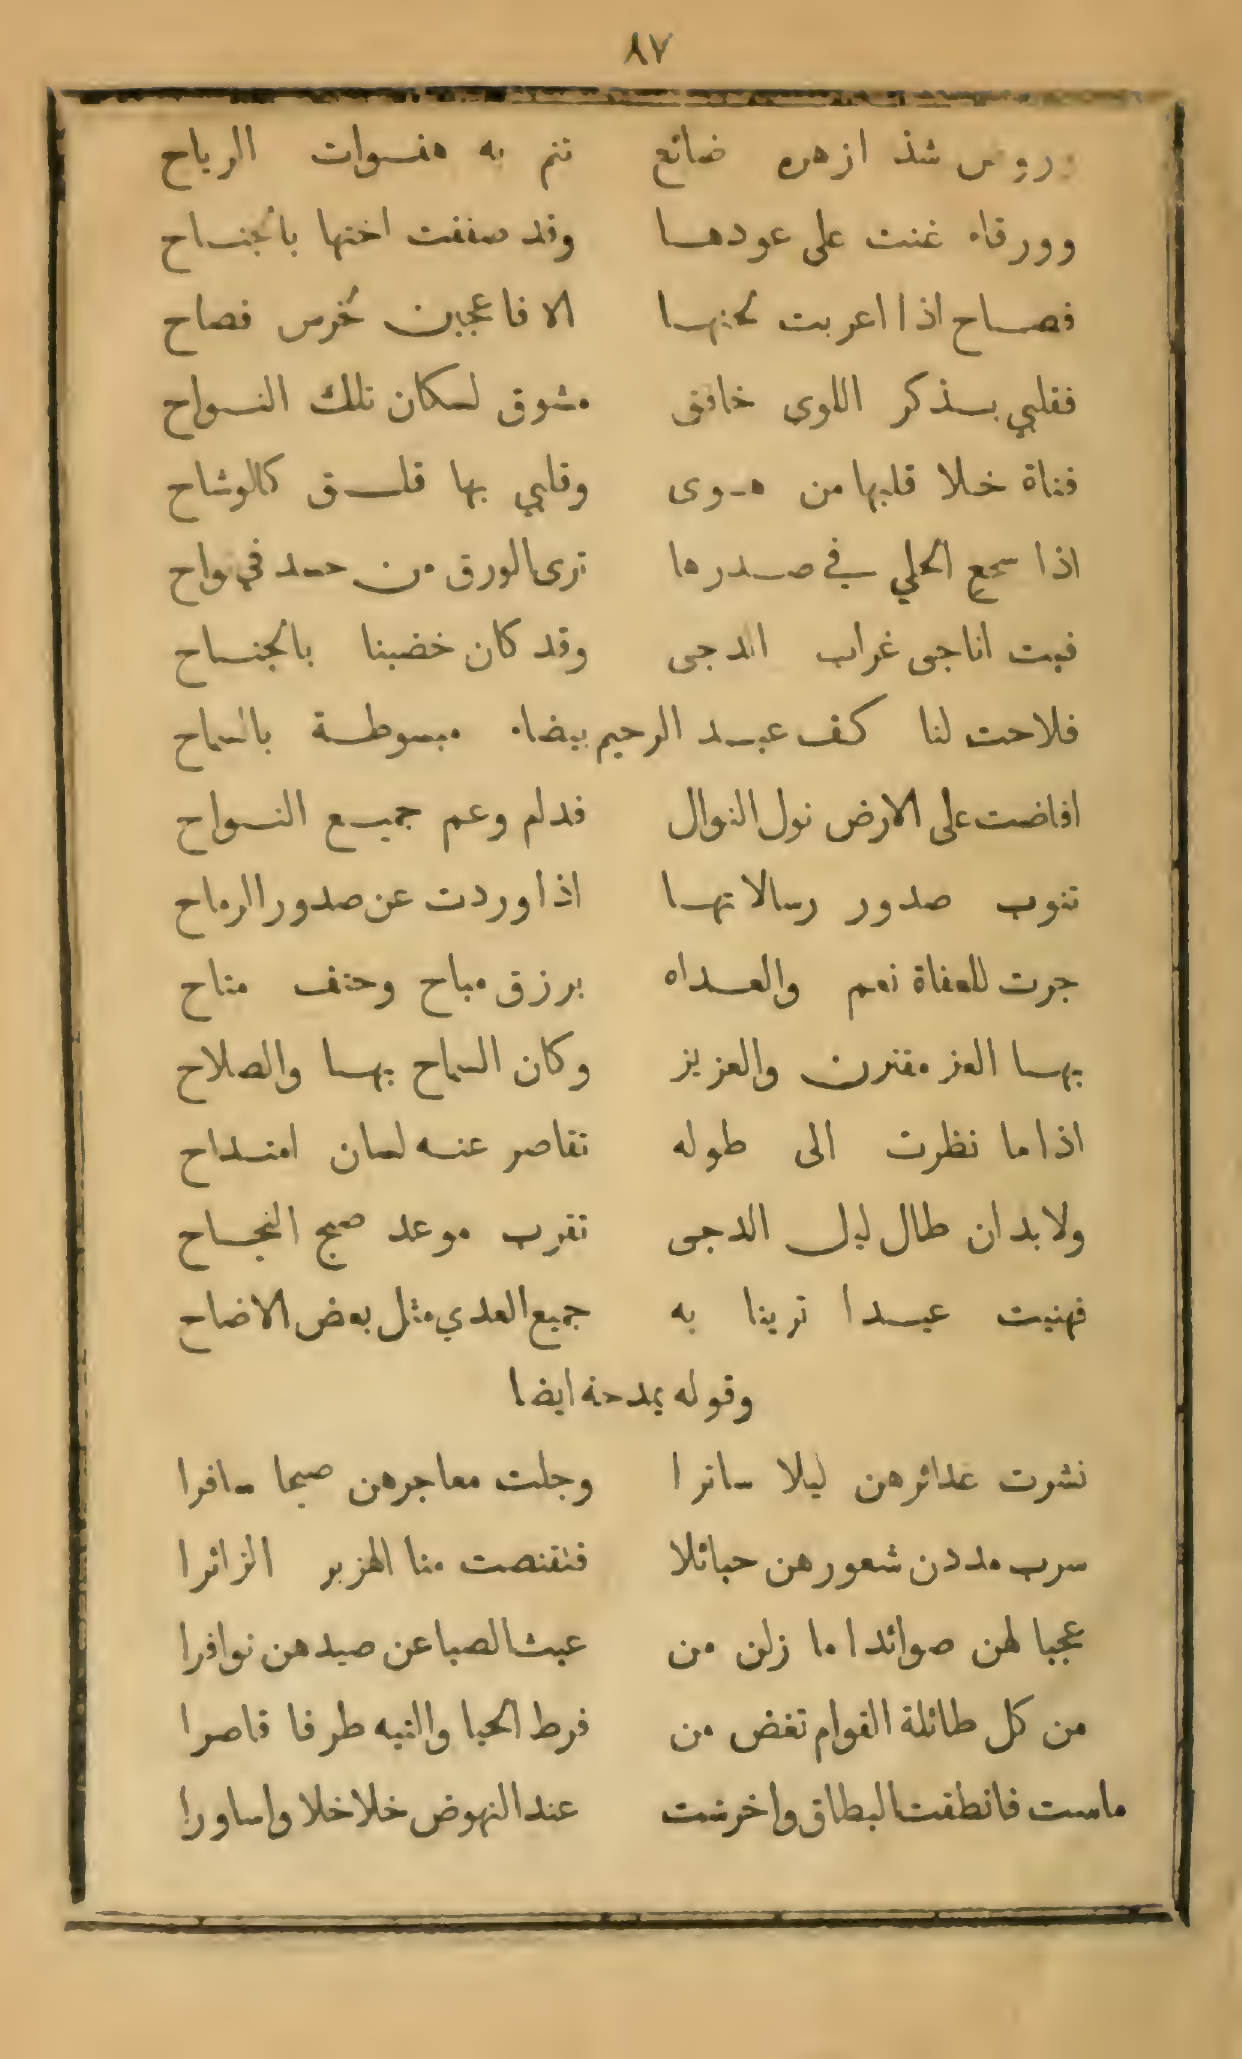 ٨٧
وروض شذ ازهره ضائع تنم به هفوات الرياح
وورقاء غنت على عودها وقد صفقت اختها بالجناح
فصاح اذا اعربت لحنها الا فاعجبن لخرس فصاح
فقلبي بذكر اللوى خافق مشوق لسكان تلك النواح
فتاة خلا قلبها من هوى وقلبي بها قلق كالوشاح
اذا سجع الحلي في صدرها ترى الورق من حسد في نواح
فبت اناجى غراب الدجى وقد كان خضبنا بالجناح
فلاحت لنا كف عبد الرحيم بيضاء مبسوطة بالسماح
افاضت على الارض نول النوال فدلم وعم جميع النواح
تنوب صدور رسالاتها اذا وردت عن صدور الرماح
جرت للعفاة نعم والعداه برزق مباح وحتف متاح
بها العز مقترن والعزيز وكان السماح بها والصلاح
اذا ما نظرت الى طوله تقاصر عنه لسان امتداح
ولا بد ان طال ليل الدجى تقرب موعد صبح النجاح
فهنيت عيدا ترينا به جميع العدي مثل بعض الاضاح
وقوله يمدحه ايضا
نشرت غدائرهن ليلا ساترا وجلت معاجرهن صبحا سافرا
سرب مددن شعورهن حبائلا فتقنصت منا الهزبر الزائرا
عجبا لهن صوائدا ما زلن من عبث الصبا عن صيدهن نوافرا
من كل طائلة القوام تغض من فرط الحيا والتيه طرفا قاصرا
ماست فانطقت البطاق واخرست عند النهوض خلاخلا واساورا